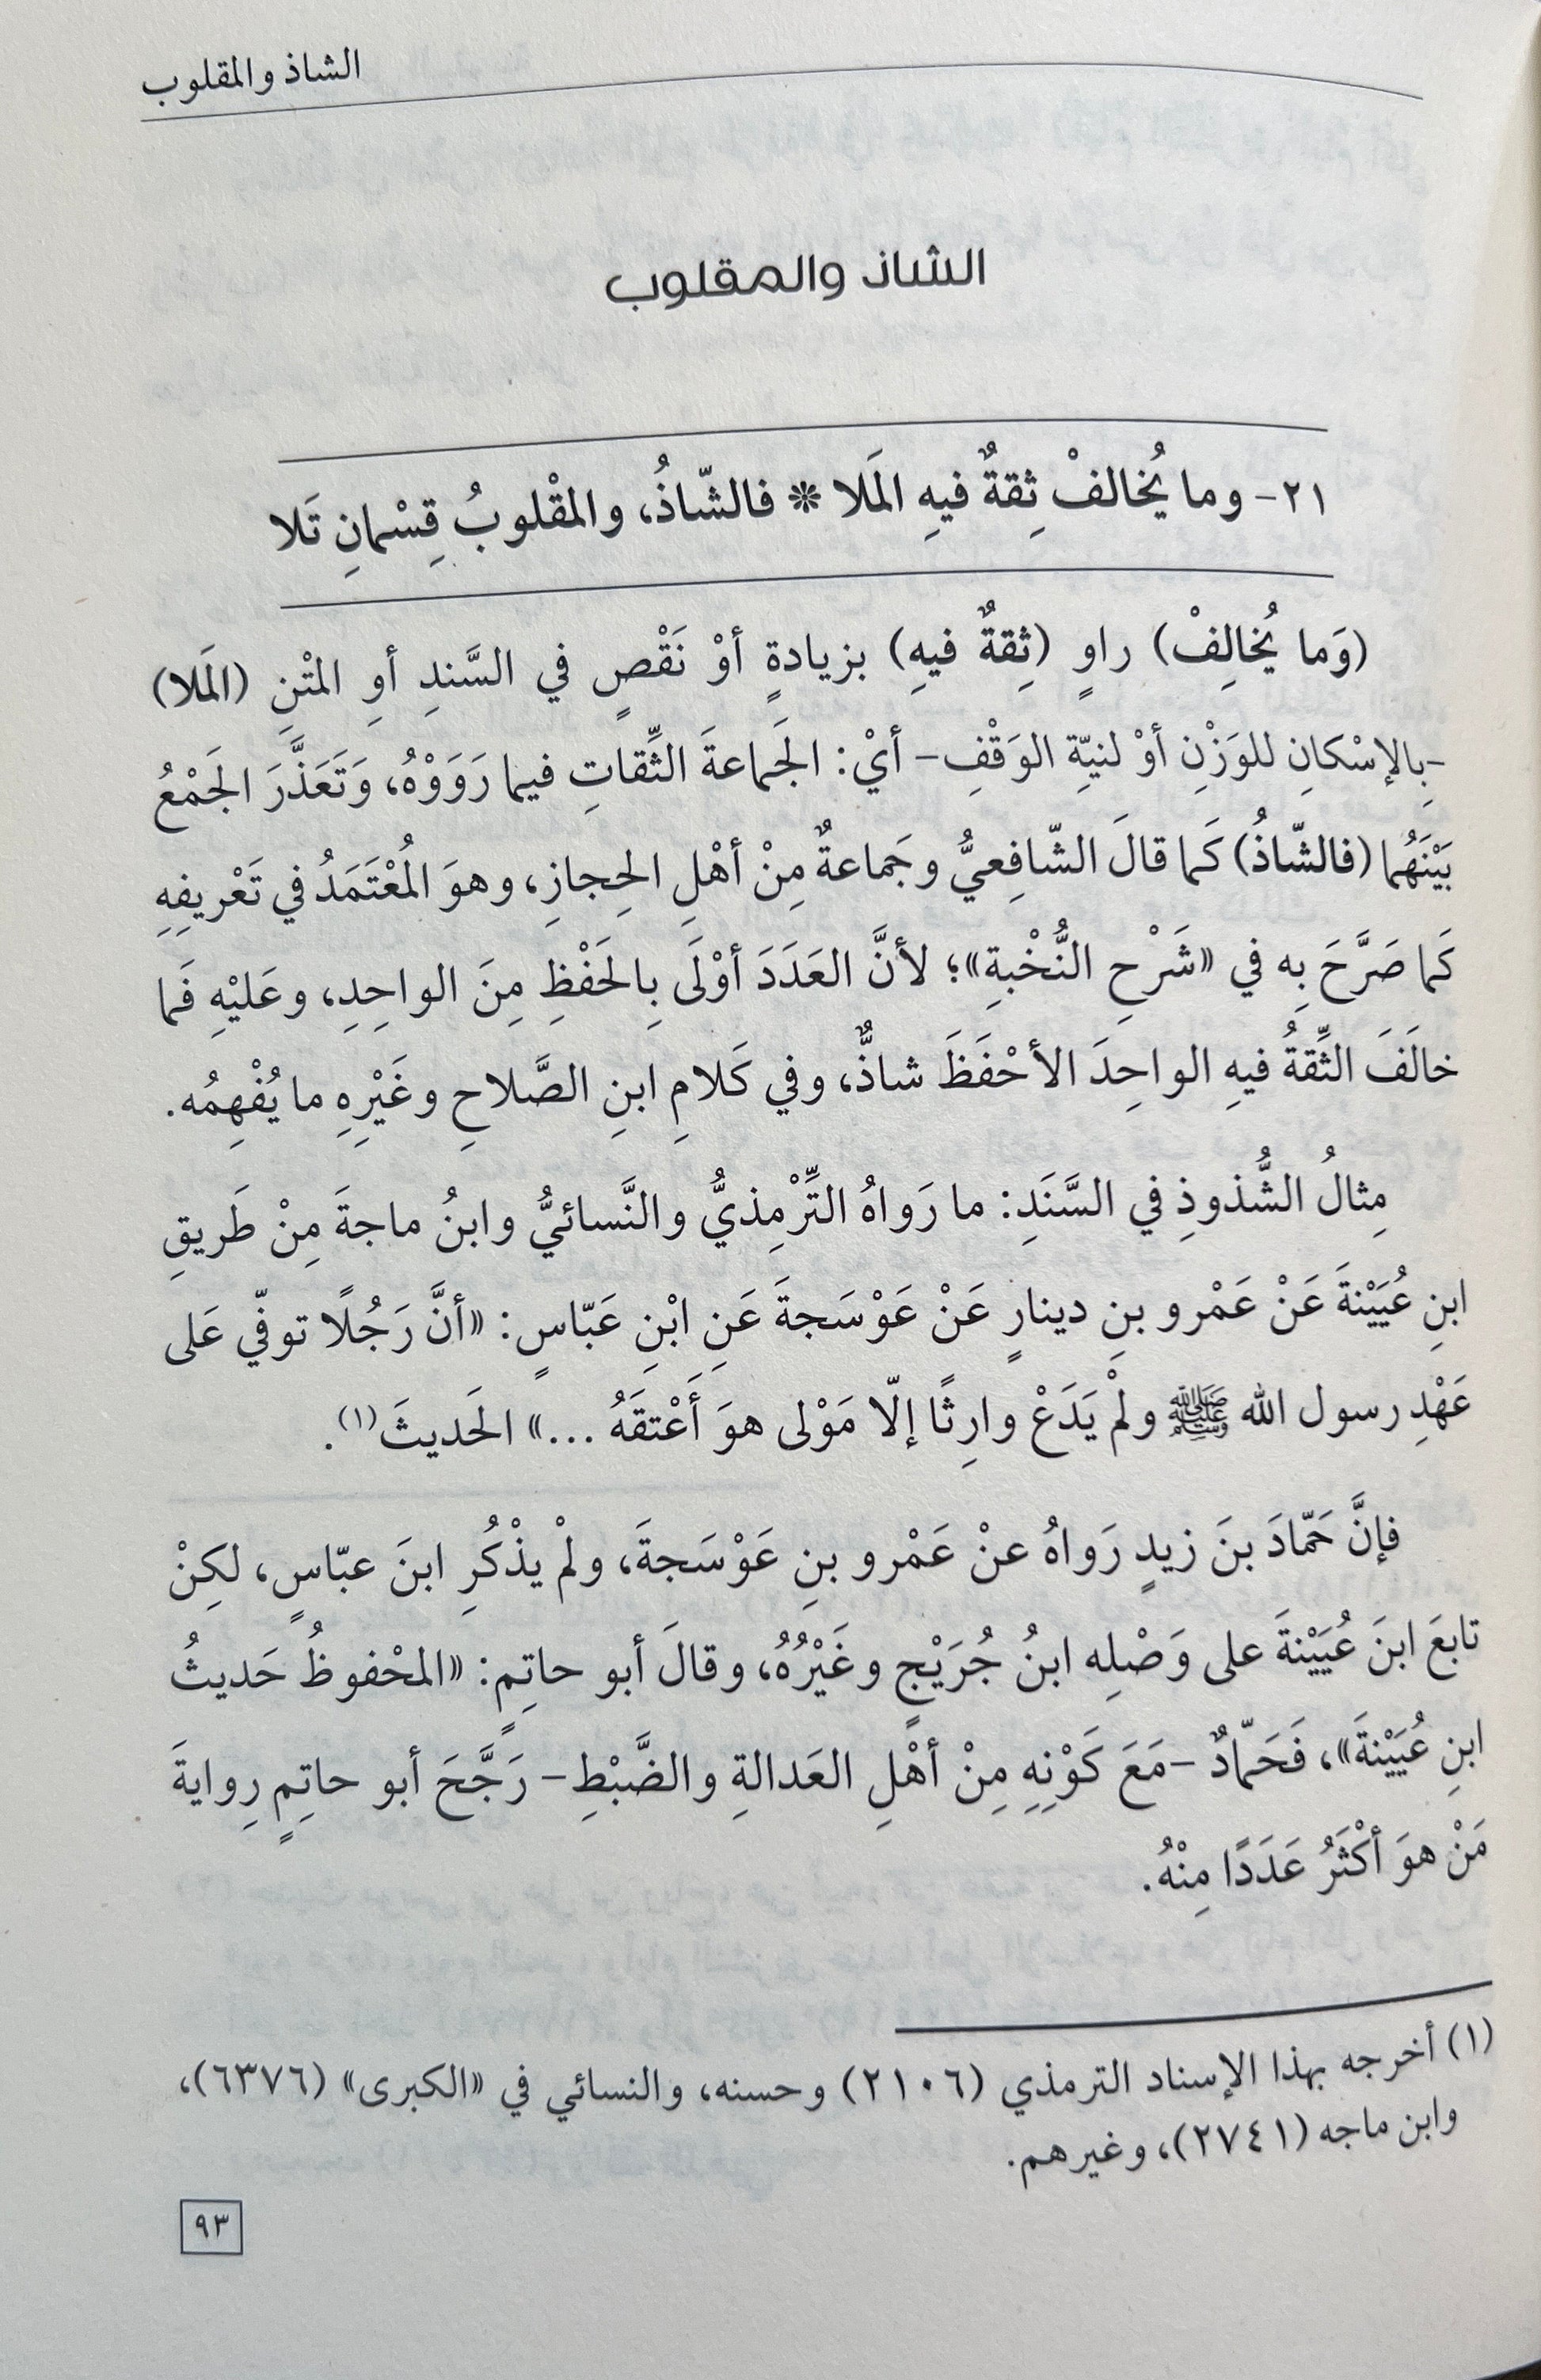 الشاذ والمقلوب
الشاذ والمقلوب
٢١- وما يُخالفْ ثِقةٌ فيهِ المَلا * فالشّاذُ، والمقْلوبُ قِسْمانِ تَلا
(وَما يُخالِفْ) راوٍ (ثِقةٌ فيهِ) بزيادةٍ أوْ نَقْصٍ في السَّندِ أوِ المتْنِ (المَلا)
-بِالإسْكانِ للوَزْنِ أوْ لنيّةِ الوَقْفِ- أيْ: الجَماعةَ الثِّقاتِ فيما رَوَوْهُ، وَتَعَذَّرَ الجَمْعُ
بَيْنَهُما (فالشّاذُ) كَما قالَ الشّافِعيُّ وجَماعةٌ مِنْ أهْلِ الحِجازِ، وهوَ المُعْتَمَدُ في تَعْريفِهِ
كَما صَرَّحَ بِه في «شَرْحِ النُّخْبةِ»؛ لأنَّ العَدَدَ أوْلَى بِالحَفْظِ مِنَ الواحِدِ، وعَليْهِ فَما
خالَفَ الثِّقةُ فيهِ الواحِدَ الأحْفَظَ شاذٌّ، وفي كَلامِ ابنِ الصَّلاحِ وغَيْرِهِ ما يُفْهِمُه.
مِثالُ الشُّذوذِ في السَّنَدِ: ما رَواهُ التِّرْمِذيُّ والنَّسائيُّ وابنُ ماجةَ مِنْ طَريقِ
ابنِ عُيَيْنةَ عَنْ عَمْرو بنِ دينارٍ عَنْ عَوْسَجةَ عَنِ ابْنِ عَبّاسٍ: «أنَّ رَجُلًا توفّي عَلى
عَهْدِ رسول الله ﷺ ولمْ يَدَعْ وارِثًا إلّا مَوْلى هوَ أَعْتقَهُ ...» الحَديثَ(١).
فإنَّ حَمّادَ بنَ زيدٍ رَواهُ عنْ عَمْرو بنِ عَوْسَجةَ، ولمْ يذْكُرِ ابنَ عبّاسٍ، لكِنْ
تابعَ ابنَ عُيَيْنةَ على وَصْلِه ابنُ جُرَيْجٍ وغَيْرُهُ، وقالَ أبو حاتِمٍ: «المحْفوظُ حَديثُ
ابنِ عُيَيْنةَ»، فَحَمّادٌ -مَعَ كَوْنِهِ مِنْ أهْلِ العَدالةِ والضَّبْطِ- رَجَّحَ أبو حاتِمٍ رِوايةَ
مَنْ هوَ أكْثَرُ عَدَدًا مِنْهُ.
(١) أخرجه بهذا الإسناد الترمذي (٢١٠٦) وحسنه، والنسائي في «الكبرى» (٦٣٧٦)،
وابن ماجه (٢٧٤١)، وغيرهم.
٩٣